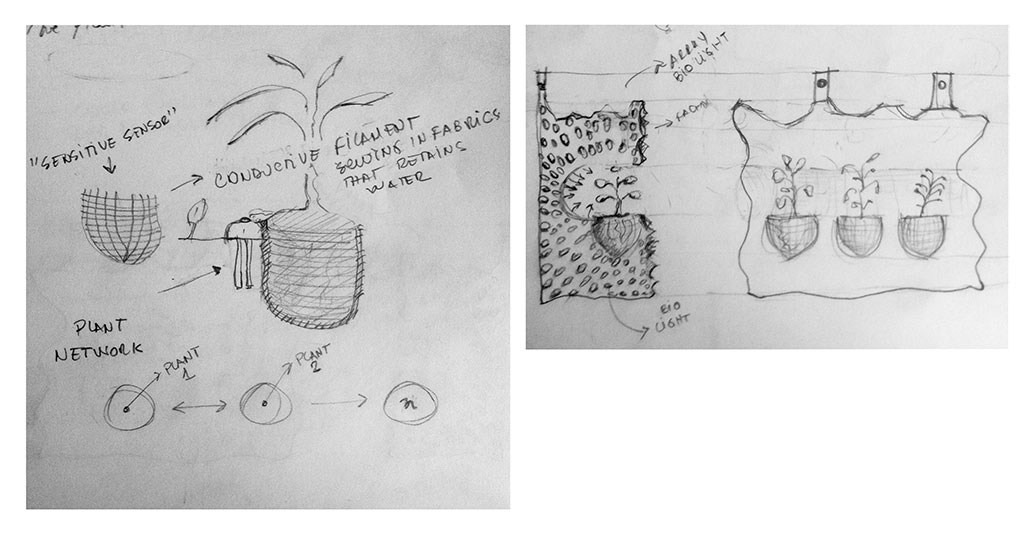 "SENSITIVE SENSOR"
CONDUCTIVE FILAMENT
SEWING IN FABRICS
THAT RETAINS
WATER
PLANT
NETWORK
PLANT
1
PLANT
2
n
ARRAY
BIO LIGHT
BIO
LIGHT